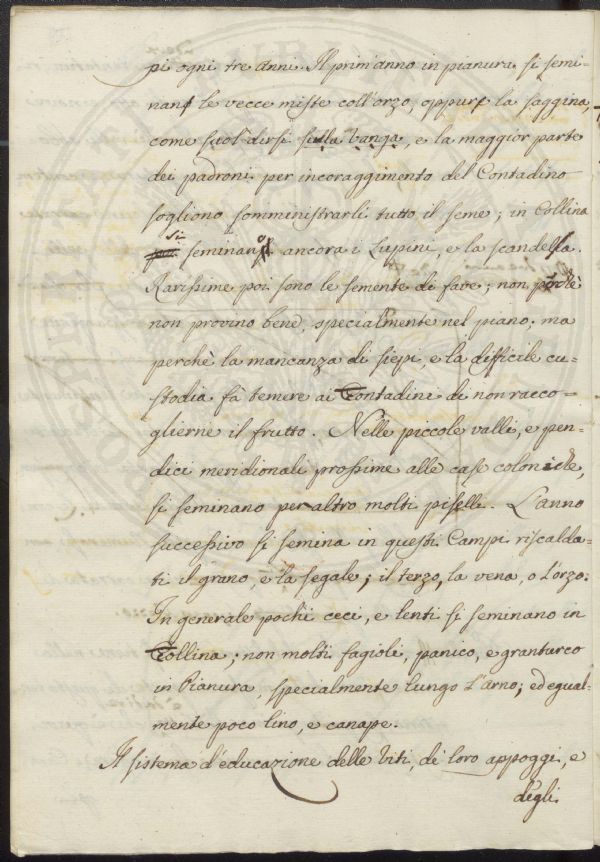 pi ogni tre anni. Il prim'anno in pianura si semi-
nano le vecce miste coll'orzo, oppure la saggina,
come suol dirsi sulla vanga, e la maggior parte
dei padroni per incoraggimento del Contadino
sogliono somministrarli tutto il seme; in Collina
si seminano ancora i Lupini, e la scandella.
Rarissime poi sono le semente di fave; non perchè
non provino bene, specialmente nel piano; ma
perchè la mancanza di siepi, e la difficile cu-
stodia fà temere ai Contadini di non racco-
glierne il frutto. Nelle piccole valli, e pen-
dici meridionali prossime alle case coloniche,
si seminano per altro molti piselli. L'anno
successivo si semina in questi Campi riscalda-
ti il grano, e la segale; il terzo, la vena, o l'orzo.
In generale pochi ceci, e lenti si seminano in
Collina; non molti fagioli, panico, e granturco
in Pianura, specialmente lungo l'Arno; ed egual-
mente poco lino, e canape.
Il sistema d'educazione delle Viti, di loro appoggi, e
degli